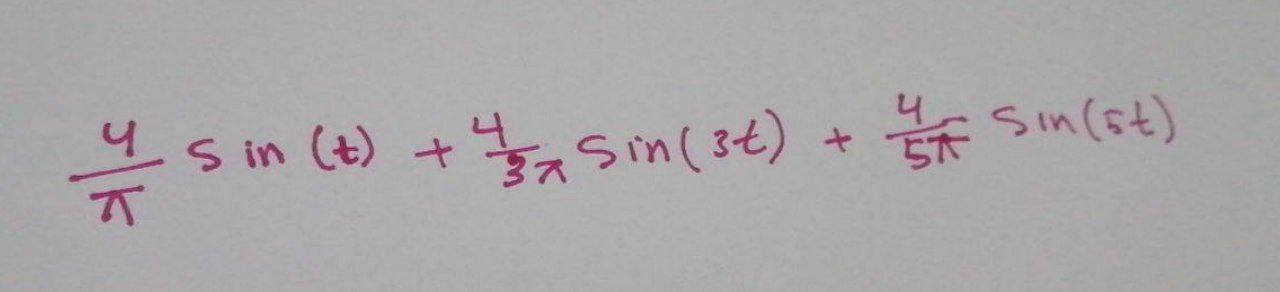 4/π sin (t) + 4/3π sin(3t) + 4/5π sin(5t)